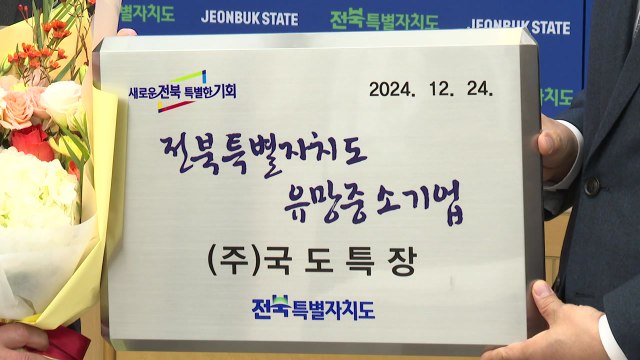 전북특별자치도
JEONBUK STATE
전북특별자치도
JEONBUK STATE
새로운전북 특별한기회
2024. 12. 24.
전북특별자치도
유망중소기업
(주)국도특장
전북특별자치도